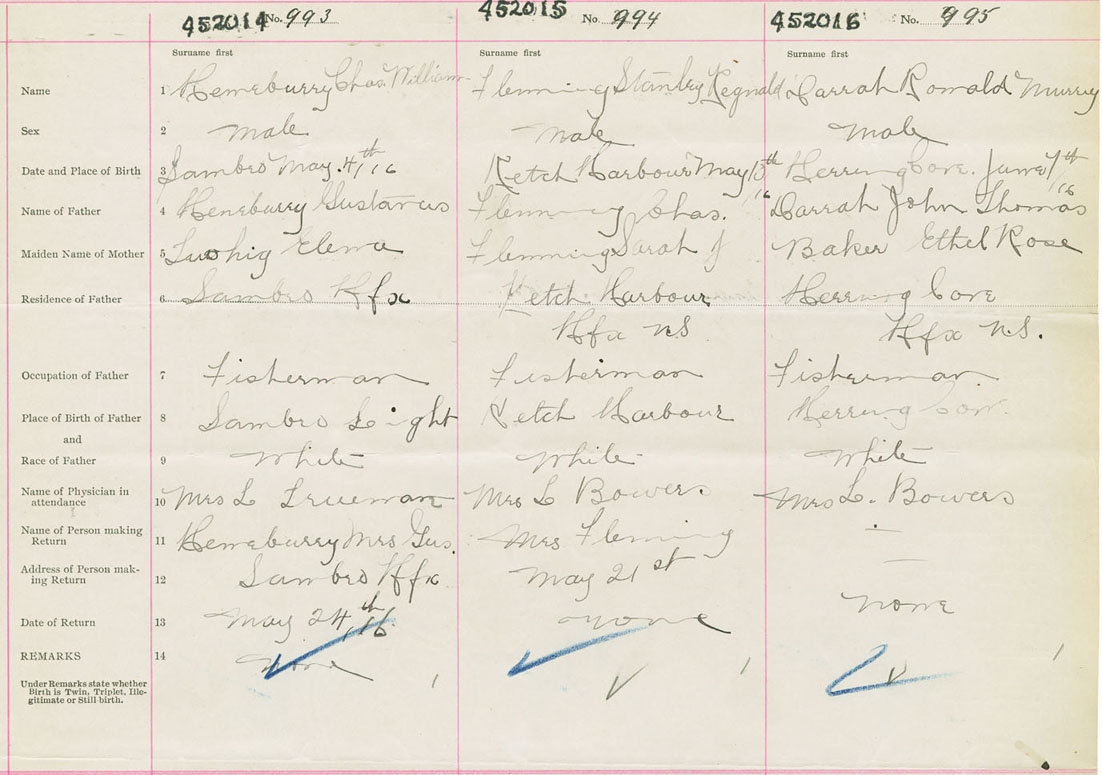 452014 No. 993 452015 No. 994 452016 No. 995
Surname first Surname first Surname first
Name 1 Heneburry Chas. William Flemming Stanley Regnald Darrah Ronald Murray
Sex 2 male male male
Date and Place of Birth 3 Sambro May. 4th, 16 Ketch Harbour May 13th 16 Herring Cove. June 7th 16
Name of Father 4 Heneburry Gustavus Flemming Chas. Darrah John Thomas
Maiden Name of Mother 5 Elena Flemming Sarah J Baker Ethel Rose
Residence of Father 6 Sambro Hfx Ketch Harbour Herring Cove
Hfx N.S Hfx N.S.
Occupation of Father 7 Fisherman Fisherman Fisherman
Place of Birth of Father 8 Sambro Light Ketch Harbour Herring Cove
and
Race of Father 9 White White White
Name of Physician in
attendance 10 Mrs L Trueman Mrs L Bowers Mrs L. Bowers
Name of Person making
Return 11 Heneburry Mrs Gus. Mrs Flemming —
Address of Person mak-
ing Return 12 Sambro Hfx May 21st —
Date of Return 13 May 24th, 16 none none
REMARKS 14 none
Under Remarks state whether
Birth is Twin, Triplet, Ille-
gitimate or Still-birth.